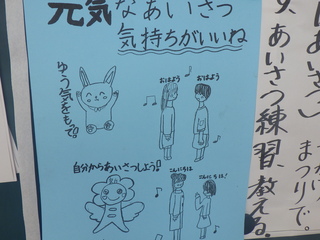 元気なあいさつ
気持ちがいいね
ゆう気をもって!
おはよう
おはよう
自分からあいさつしよう!
こんにちは
こんにちは!
あいさつ練習、教える。
まつりで。